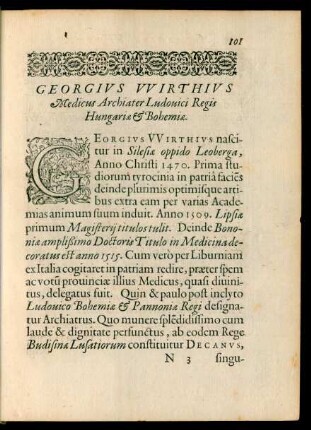 101
GEORGIVS VVIRTHIVS
Medicus Archiater Ludovici Regis
Hungariæ & Bohemiæ.
GEORGIVS VVIRTHIVS nasci-
tur in Silesiæ oppido Leoberga,
Anno Christi 1470. Prima stu-
diorum tyrocinia in patria faciẽs
deinde plurimis optimisque arti-
bus extra eam per varias Acade-
mias animum suum induit. Anno 1509. Lipsiæ
primum Magisterij titulos tulit. Deinde Bono-
niæ amplissimo Doctoris Titulo in Medicina de-
coratus est anno 1515. Cum verò per Liburniam
ex Italia cogitaret in patriam redire, præter spem
ac votũ provinciæ illius Medicus, quasi divini-
tus, delegatus fuit. Quin & paulo post inclyto
Ludovico Bohemiæ & Pannoniæ Regi designa-
tur Archiatrus. Quo munere splẽdidissimo cum
laude & dignitate perfunctus, ab eodem Rege
Budisinæ Lusatiorum constituitur DECANVS,
N 3 singu-